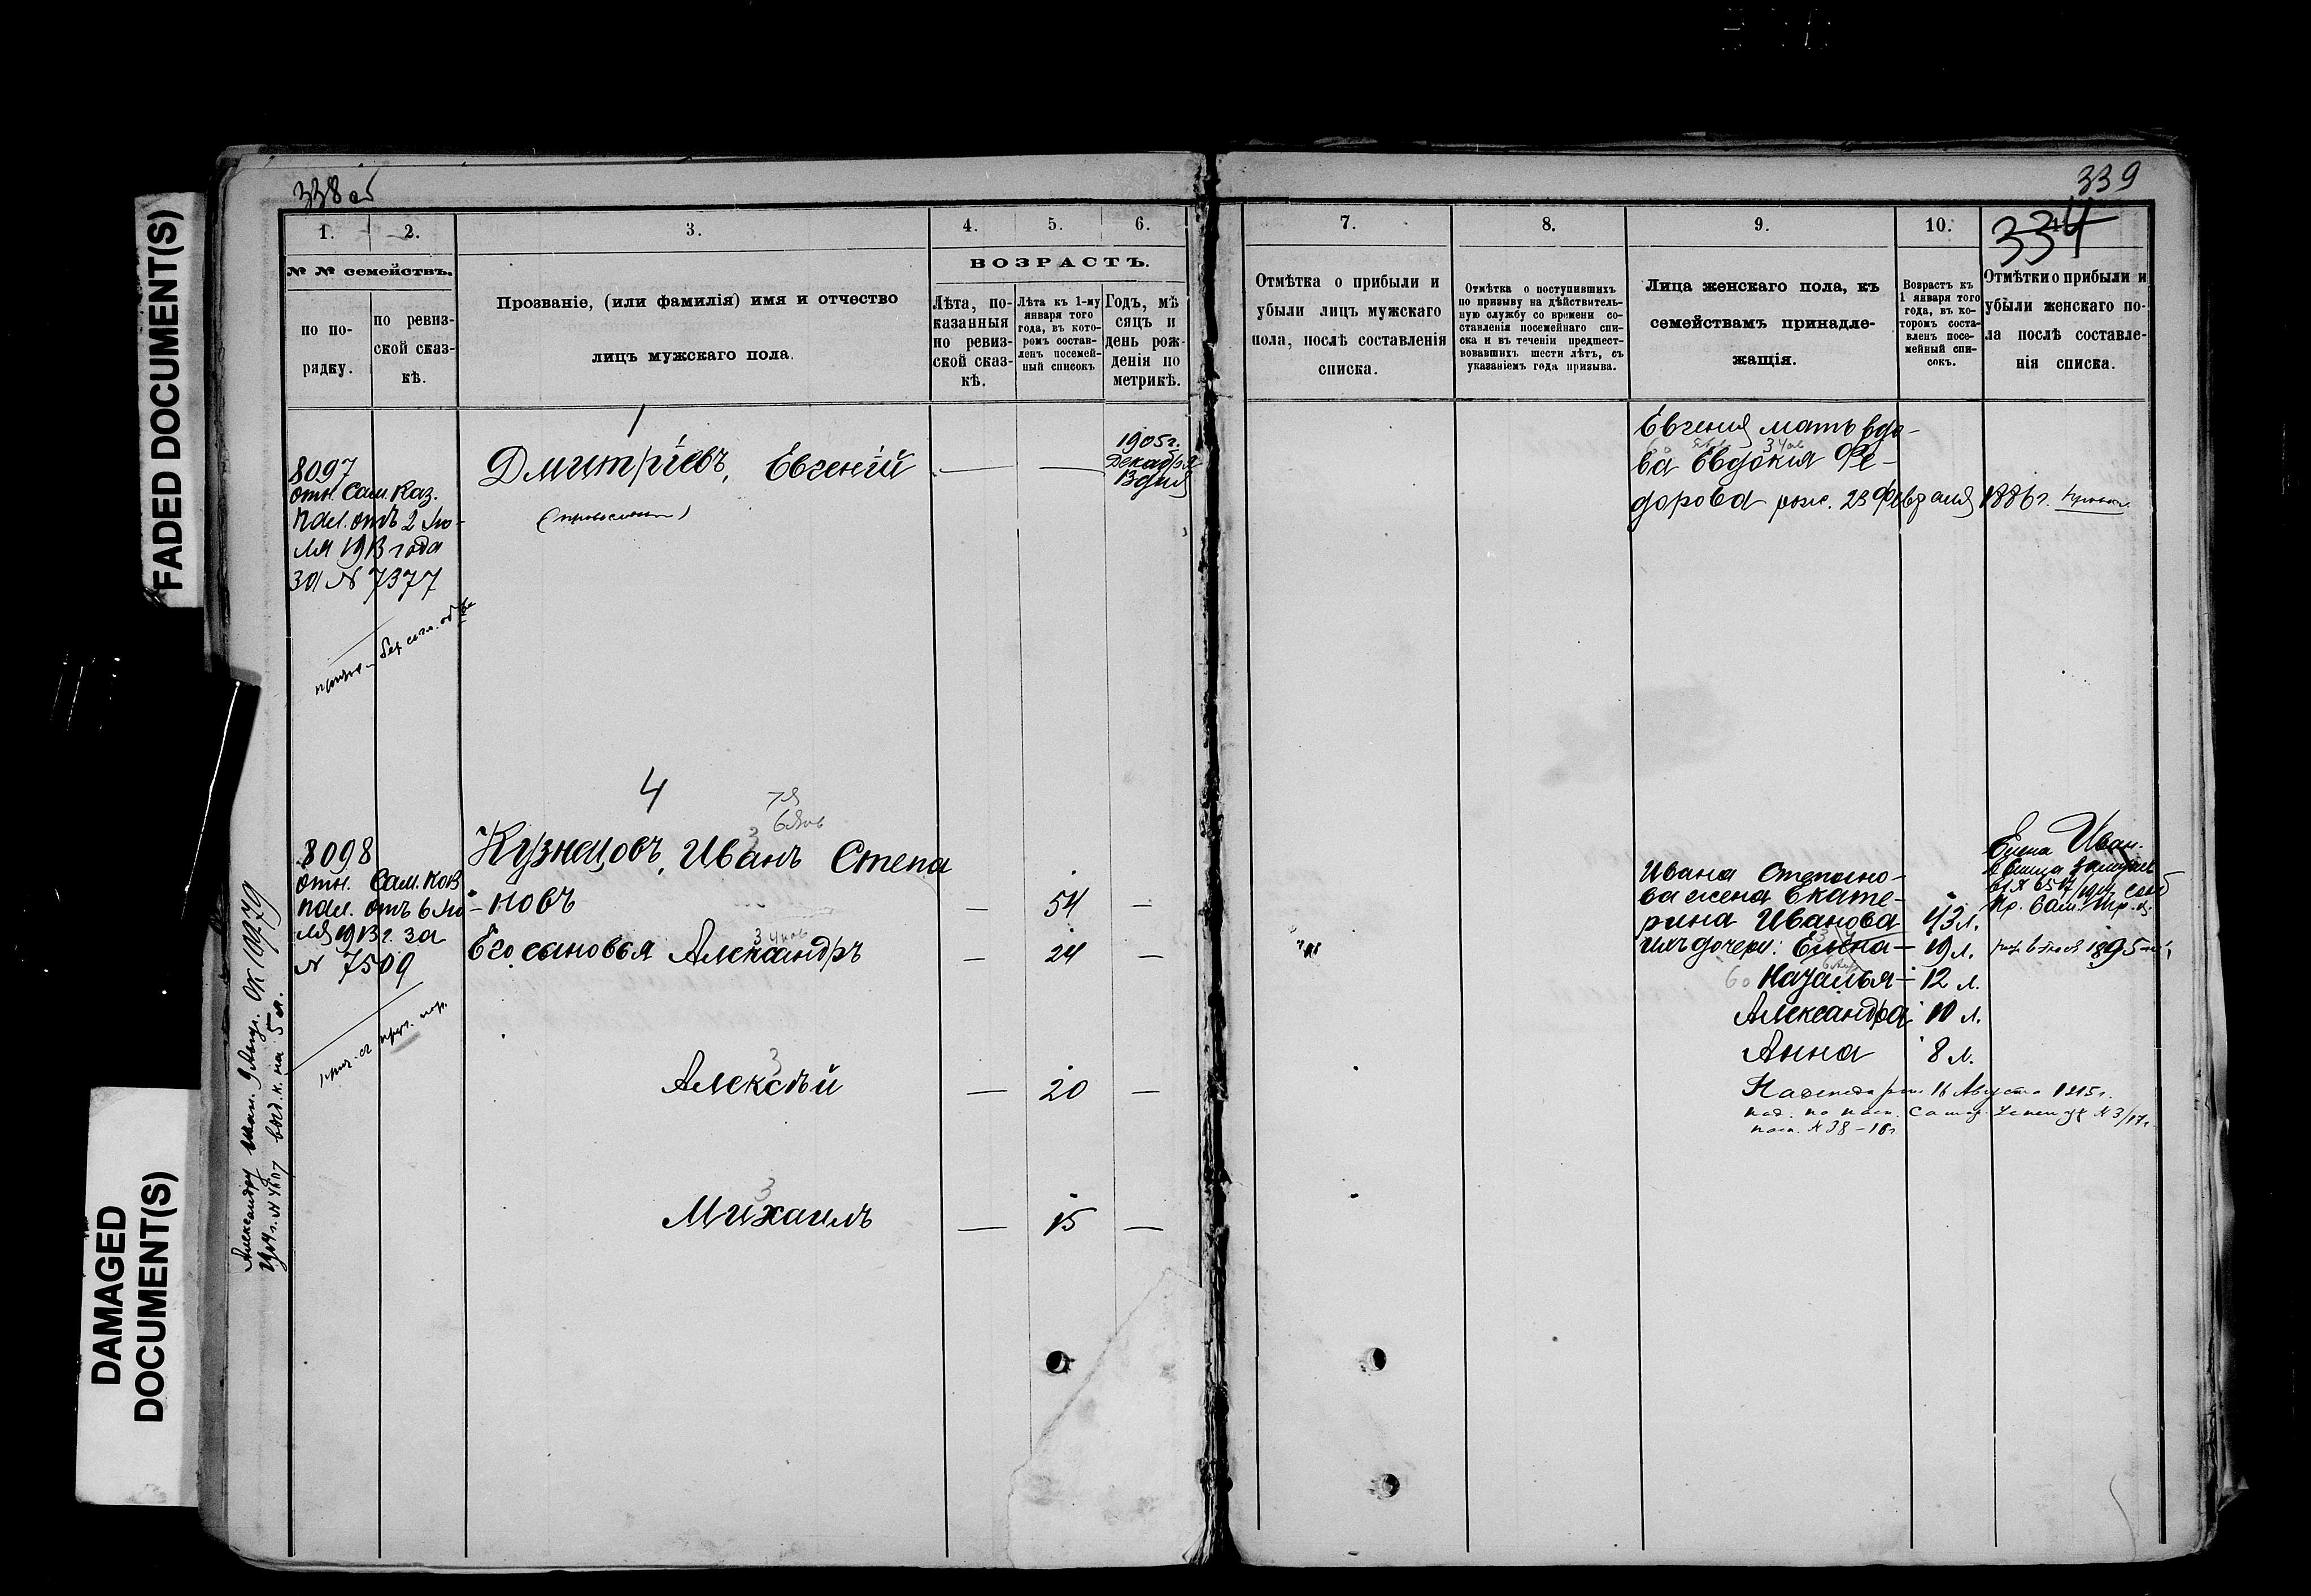 FADED DOCUMENT(S)
DAMAGED
DOCUMENT(S)
338 об
1. 2. 3. 4. 5. 6.
№ № семействъ.
по по-
рядку.
по ревиз-
ской сказ-
кѣ.
Прозваніе, (или фамилія) имя и отчество
лицъ мужскаго пола.
ВОЗРАСТЪ.
Лѣта, по-
казанныя
по ревиз-
ской сказ-
кѣ.
Лѣта къ 1-му
января того
года, въ кото-
ромъ состав-
ленъ посемей-
ный списокъ
Годъ, мѣ
сяцъ и
день рож-
денія по
метрикѣ.
1
8097
отн. Сам. Каз.
пал. отъ 2 Iю-
ля 1913 года
за № 7377
Дмитріевъ, Евгеній
1905 г.
Декабря
13 дня
4
8098
отн. Сам. Каз
пал. отъ 6 Iю-
ля 1913 г. за
№ 7509
Кузнецовъ, Иванъ Степа
новъ — 54 —
Его сыновья Александръ — 24 —
Алексѣй — 20 —
Михаилъ — 15 —
339
334
7. 8. 9. 10.
Отмѣтка о прибыли и
убыли лицъ мужскаго
пола, послѣ составленія
списка.
Отмѣтка о поступившихъ
по призыву на дѣйствитель-
ную службу со времени со-
ставленія посемейнаго спи-
ска и въ теченіи предшест-
вовавшихъ шести лѣтъ, съ
указаніемъ года призыва.
Лица женскаго пола, къ
семействамъ принадле-
жащія.
Возрастъ къ
1 января того
года, въ ко-
торомъ соста-
вленъ посе-
мейный спи-
сокъ.
Отмѣтки о прибыли и
убыли женскаго по-
ла послѣ составле-
нія списка.
Евгения мать вдо-
ва Евдокия Фе-
дорова рож. 23 февраля 1886 г.
Ивана Степано-
ва жена Екате-
рина Иванова 43 л.
ихъ дочери: Елена — 19 л.
Наталья — 12 л.
Александра 10 л.
Анна 8 л.
Надежда рож. 16 Августа 1915 г.
Елена Иван.